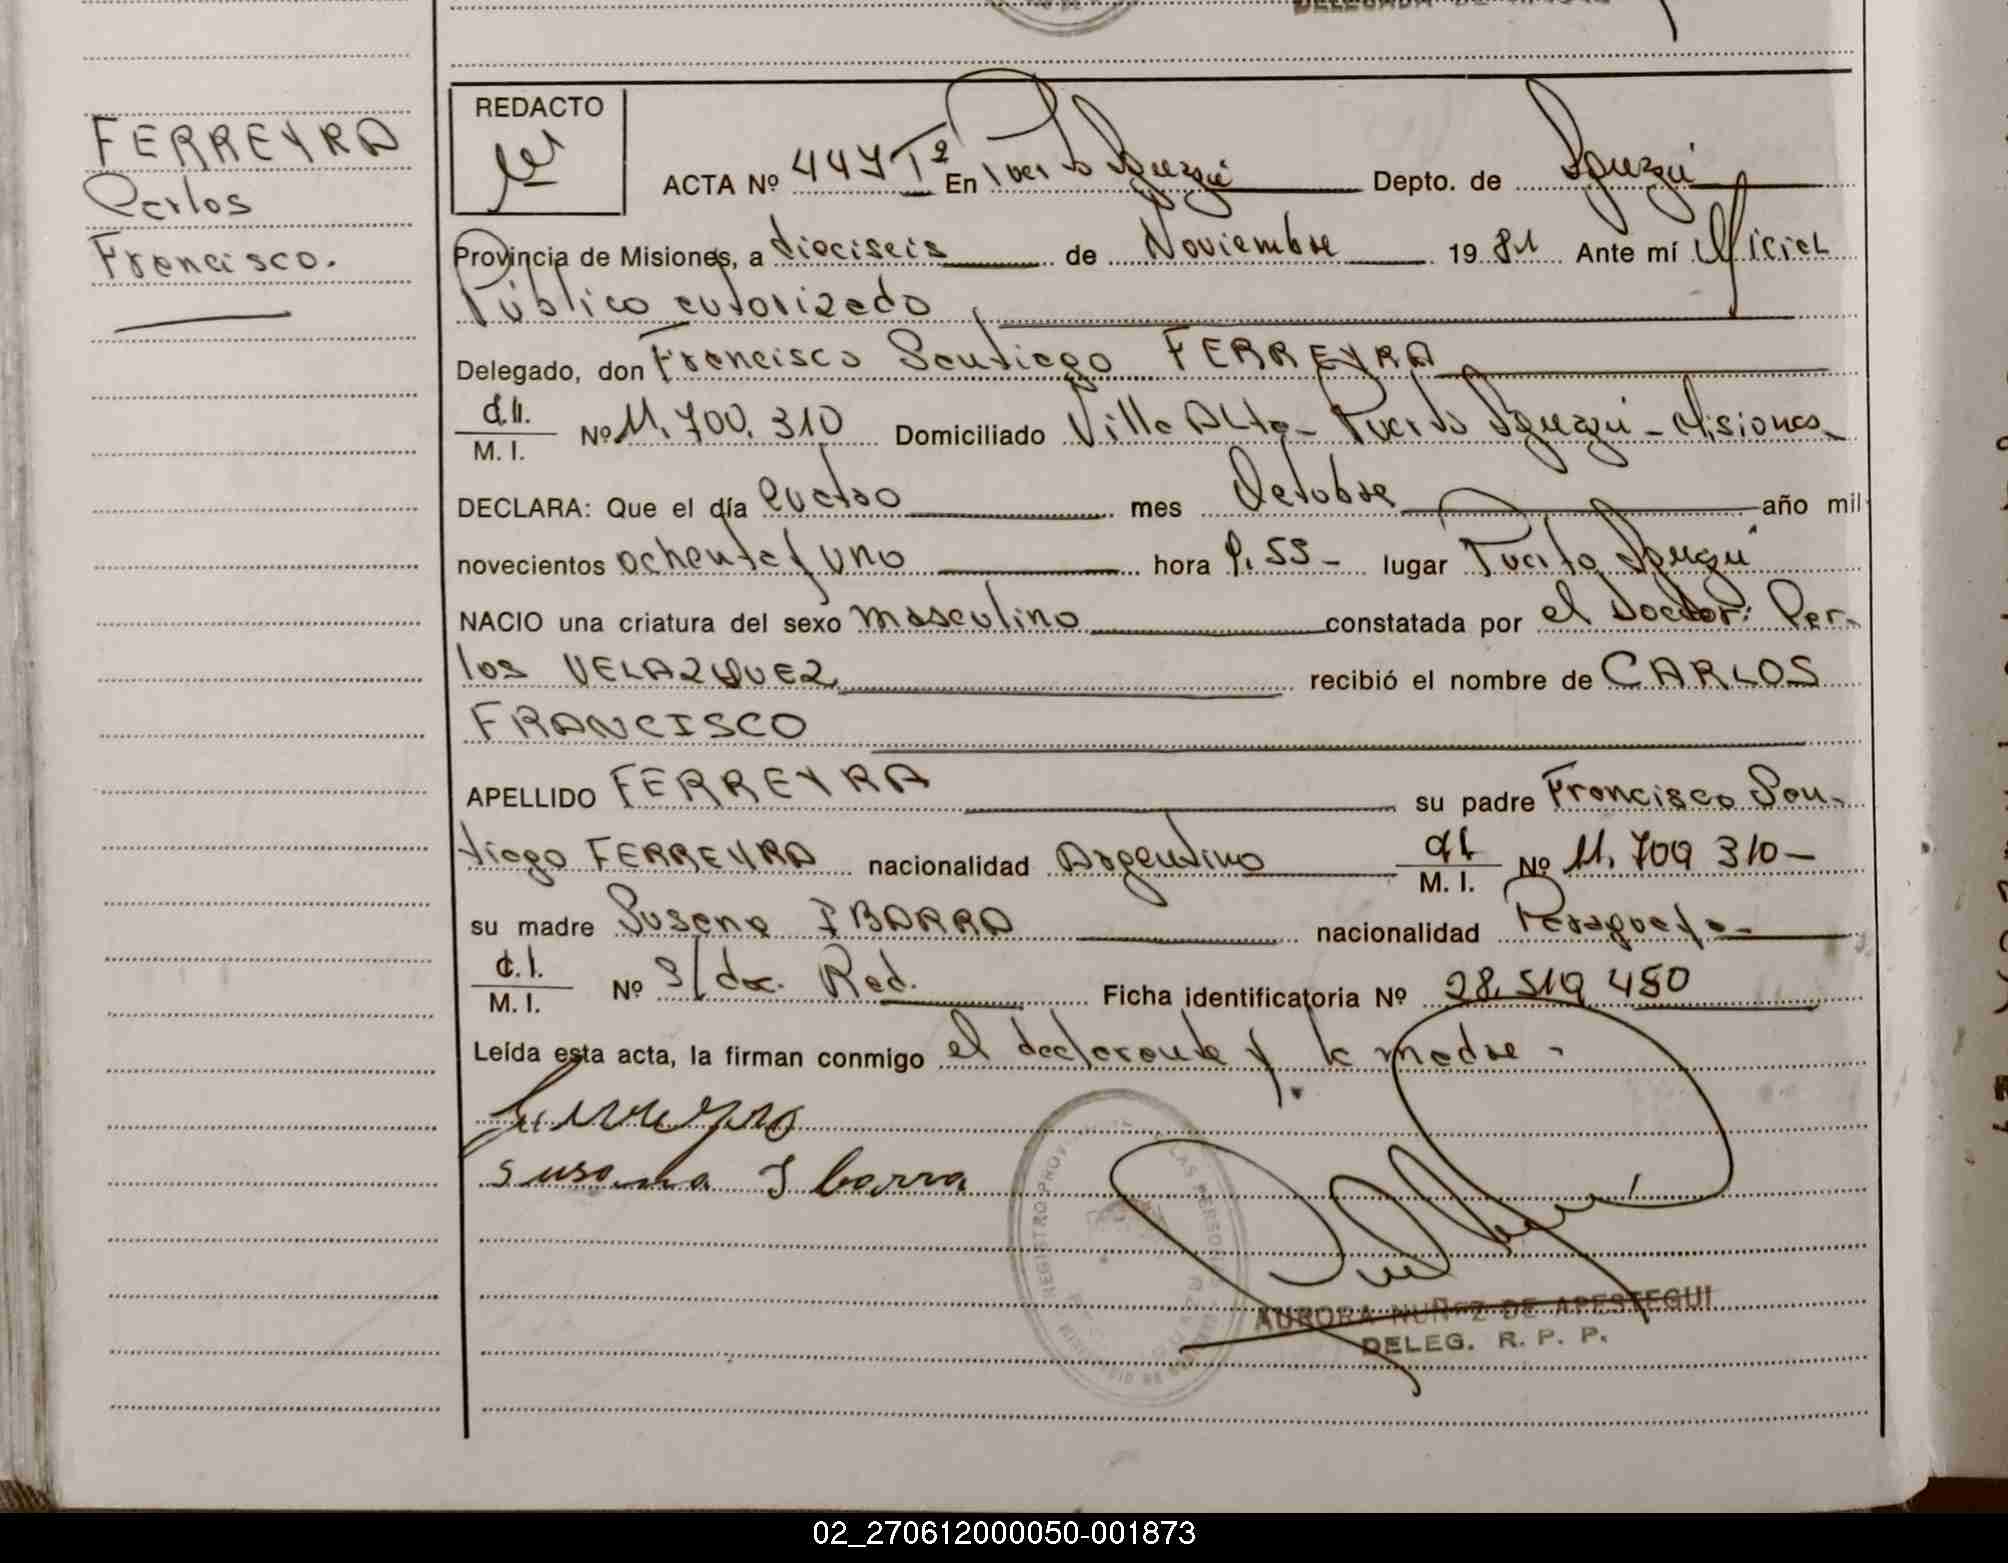 FERREYRA
Carlos
Francisco.
REDACTO
ACTA Nº 447 Tº 2 En Puerto Iguazú Depto. de Iguazú
Provincia de Misiones, a dieciseis de Noviembre 1981 Ante mí Oficial
Público autorizado
Delegado, don Francisco Santiago FERREYRA
d.I. M. I. Nº 11.700.310 Domiciliado Villa Alta - Puerto Iguazú - Misiones
DECLARA: Que el día cuatro mes Octubre año mil
novecientos ochenta y uno hora 9.55- lugar Puerto Iguazú
NACIO una criatura del sexo masculino constatada por el Doctor: Car-
los VELAZQUEZ recibió el nombre de CARLOS
FRANCISCO
APELLIDO FERREYRA su padre Francisco San-
tiago FERREYRA nacionalidad Argentino d.I. M. I. Nº 11.700 310-
su madre Susana IBARRA nacionalidad Paraguaya-
c.I. M. I. Nº s/doc. Rad. Ficha identificatoria Nº 28.519 450
Leída esta acta, la firman conmigo el declarante y la madre -
Ferreyra
Susana Ibarra
AURORA NUÑEZ DE APESTEGUI
DELEG. R. P. P.
02_270612000050-001873